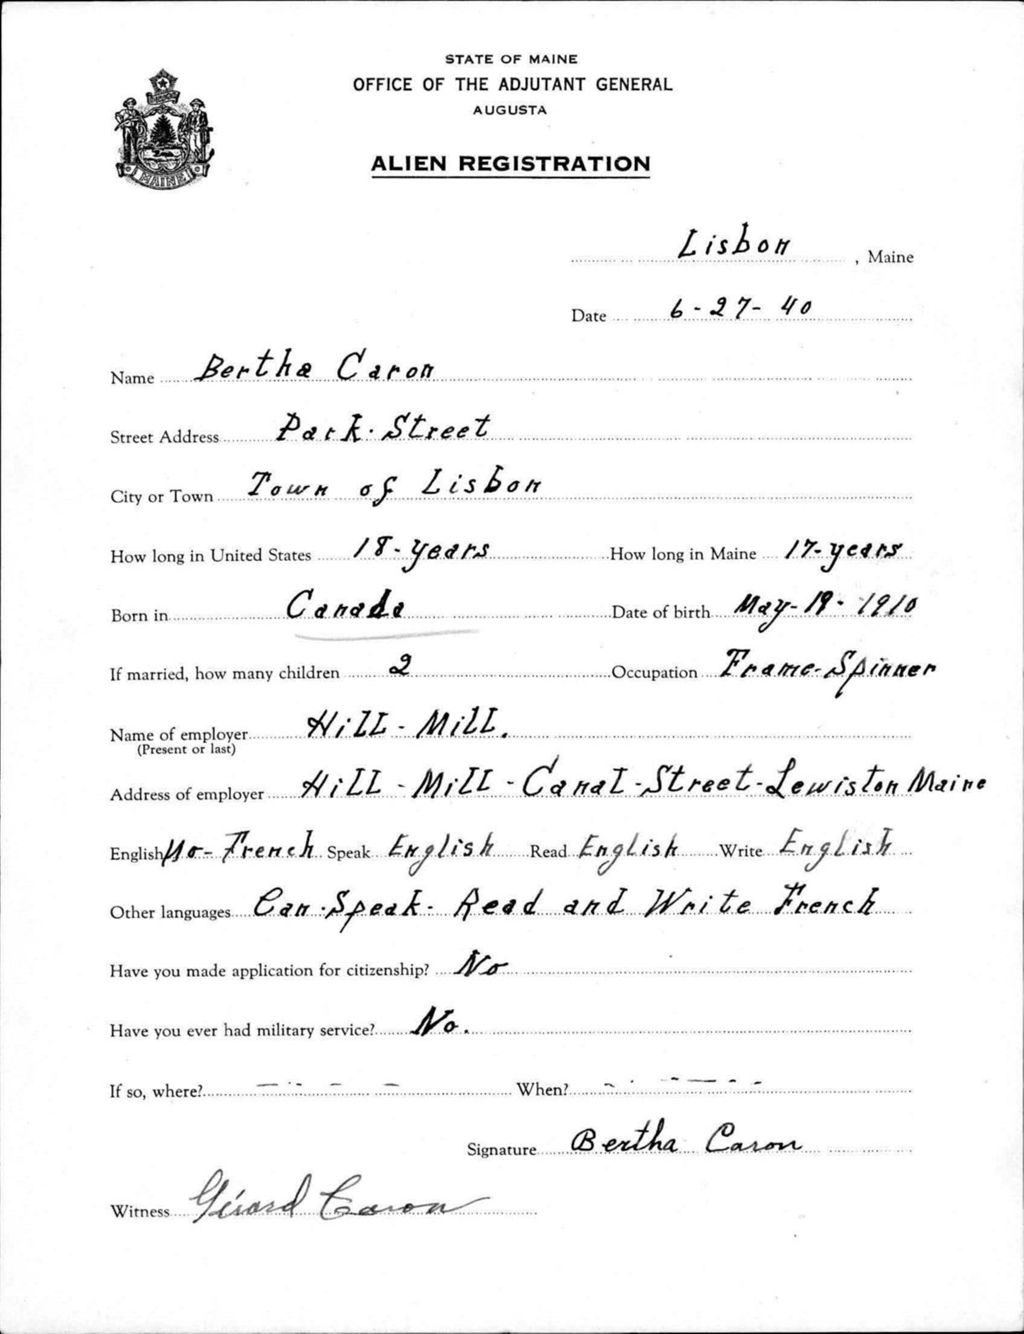 STATE OF MAINE
OFFICE OF THE ADJUTANT GENERAL
AUGUSTA
ALIEN REGISTRATION
MAINE
Lisbon, Maine
Date 6-27-40
Name Bertha Caron
Street Address Park. Street
City or Town Town of Lisbon
How long in United States 18-years How long in Maine 17-years
Born in Canada Date of birth May-19-1910
If married, how many children 2 Occupation Frame-Spinner
Name of employer Hill-Mill.
(Present or last)
Address of employer Hill-Mill-Canal-Street-Lewiston Maine
English No-French Speak English Read English Write English
Other languages Can-Speak-Read and Write French
Have you made application for citizenship? No
Have you ever had military service? No.
If so, where? When?
Signature Bertha Caron
Witness Gérard Caron